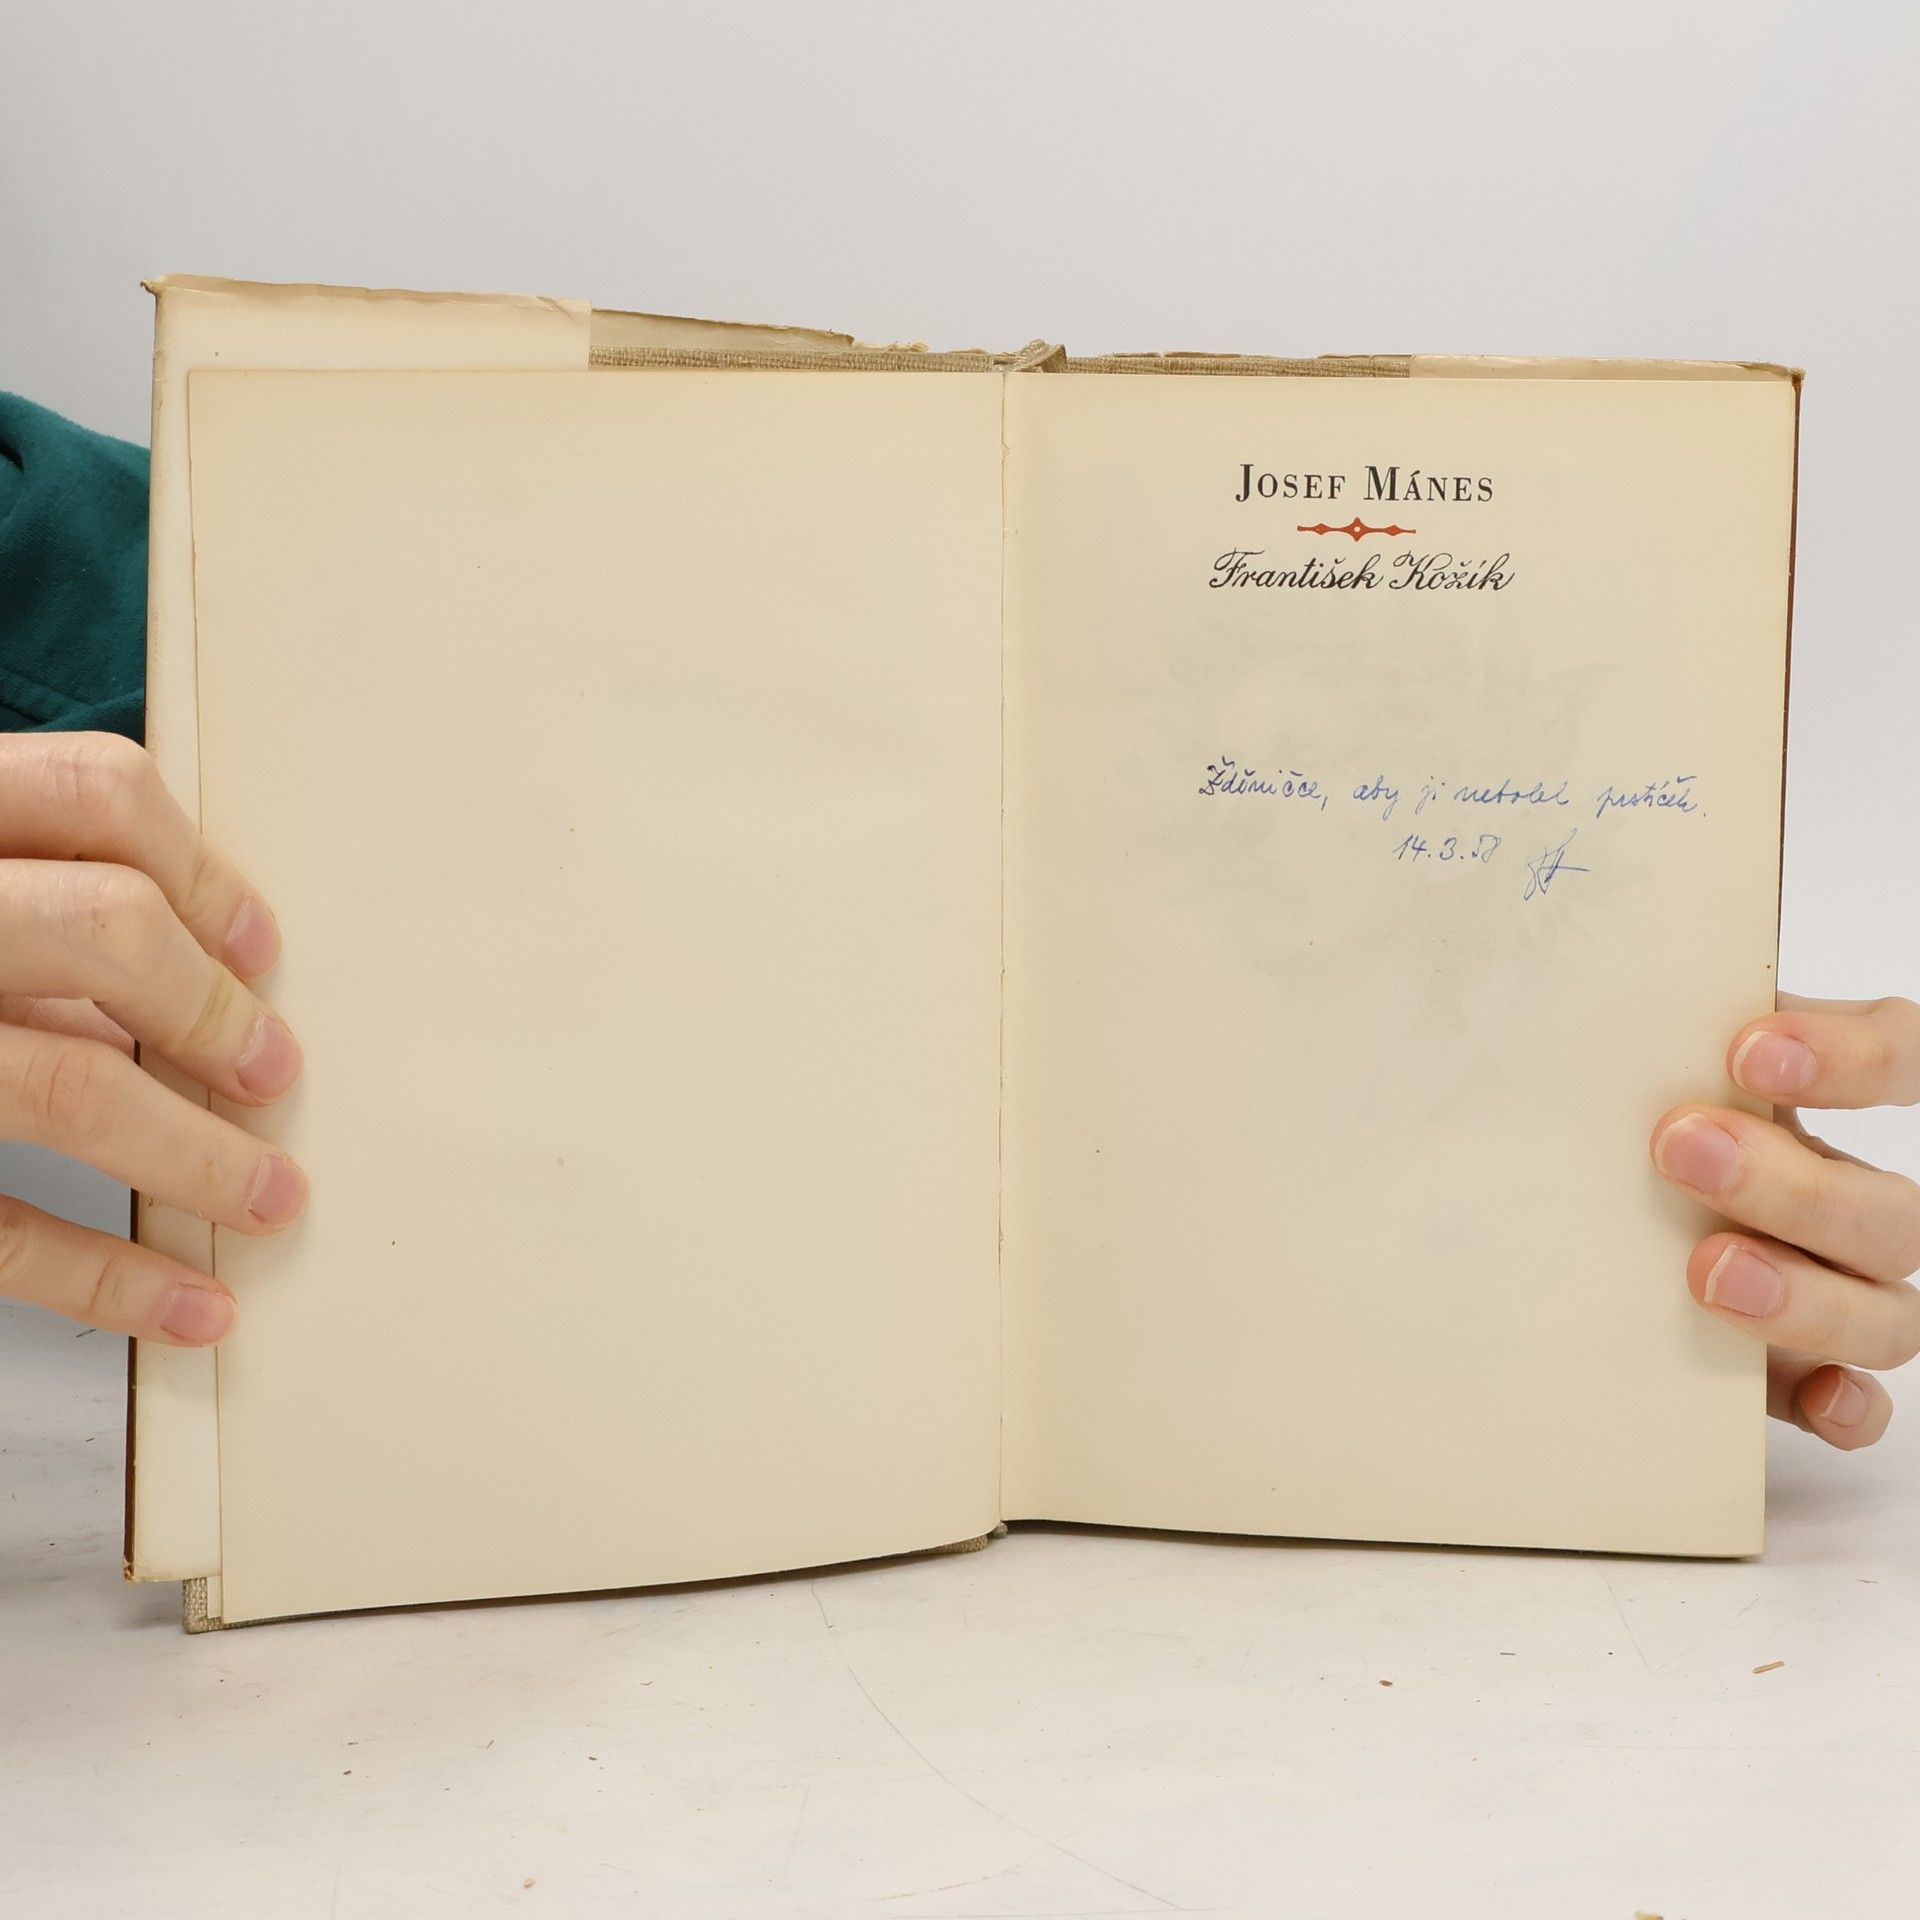 JOSEF MÁNES
František Kožík
Zděničce, aby ji nebolel prstíček.
14.3.58